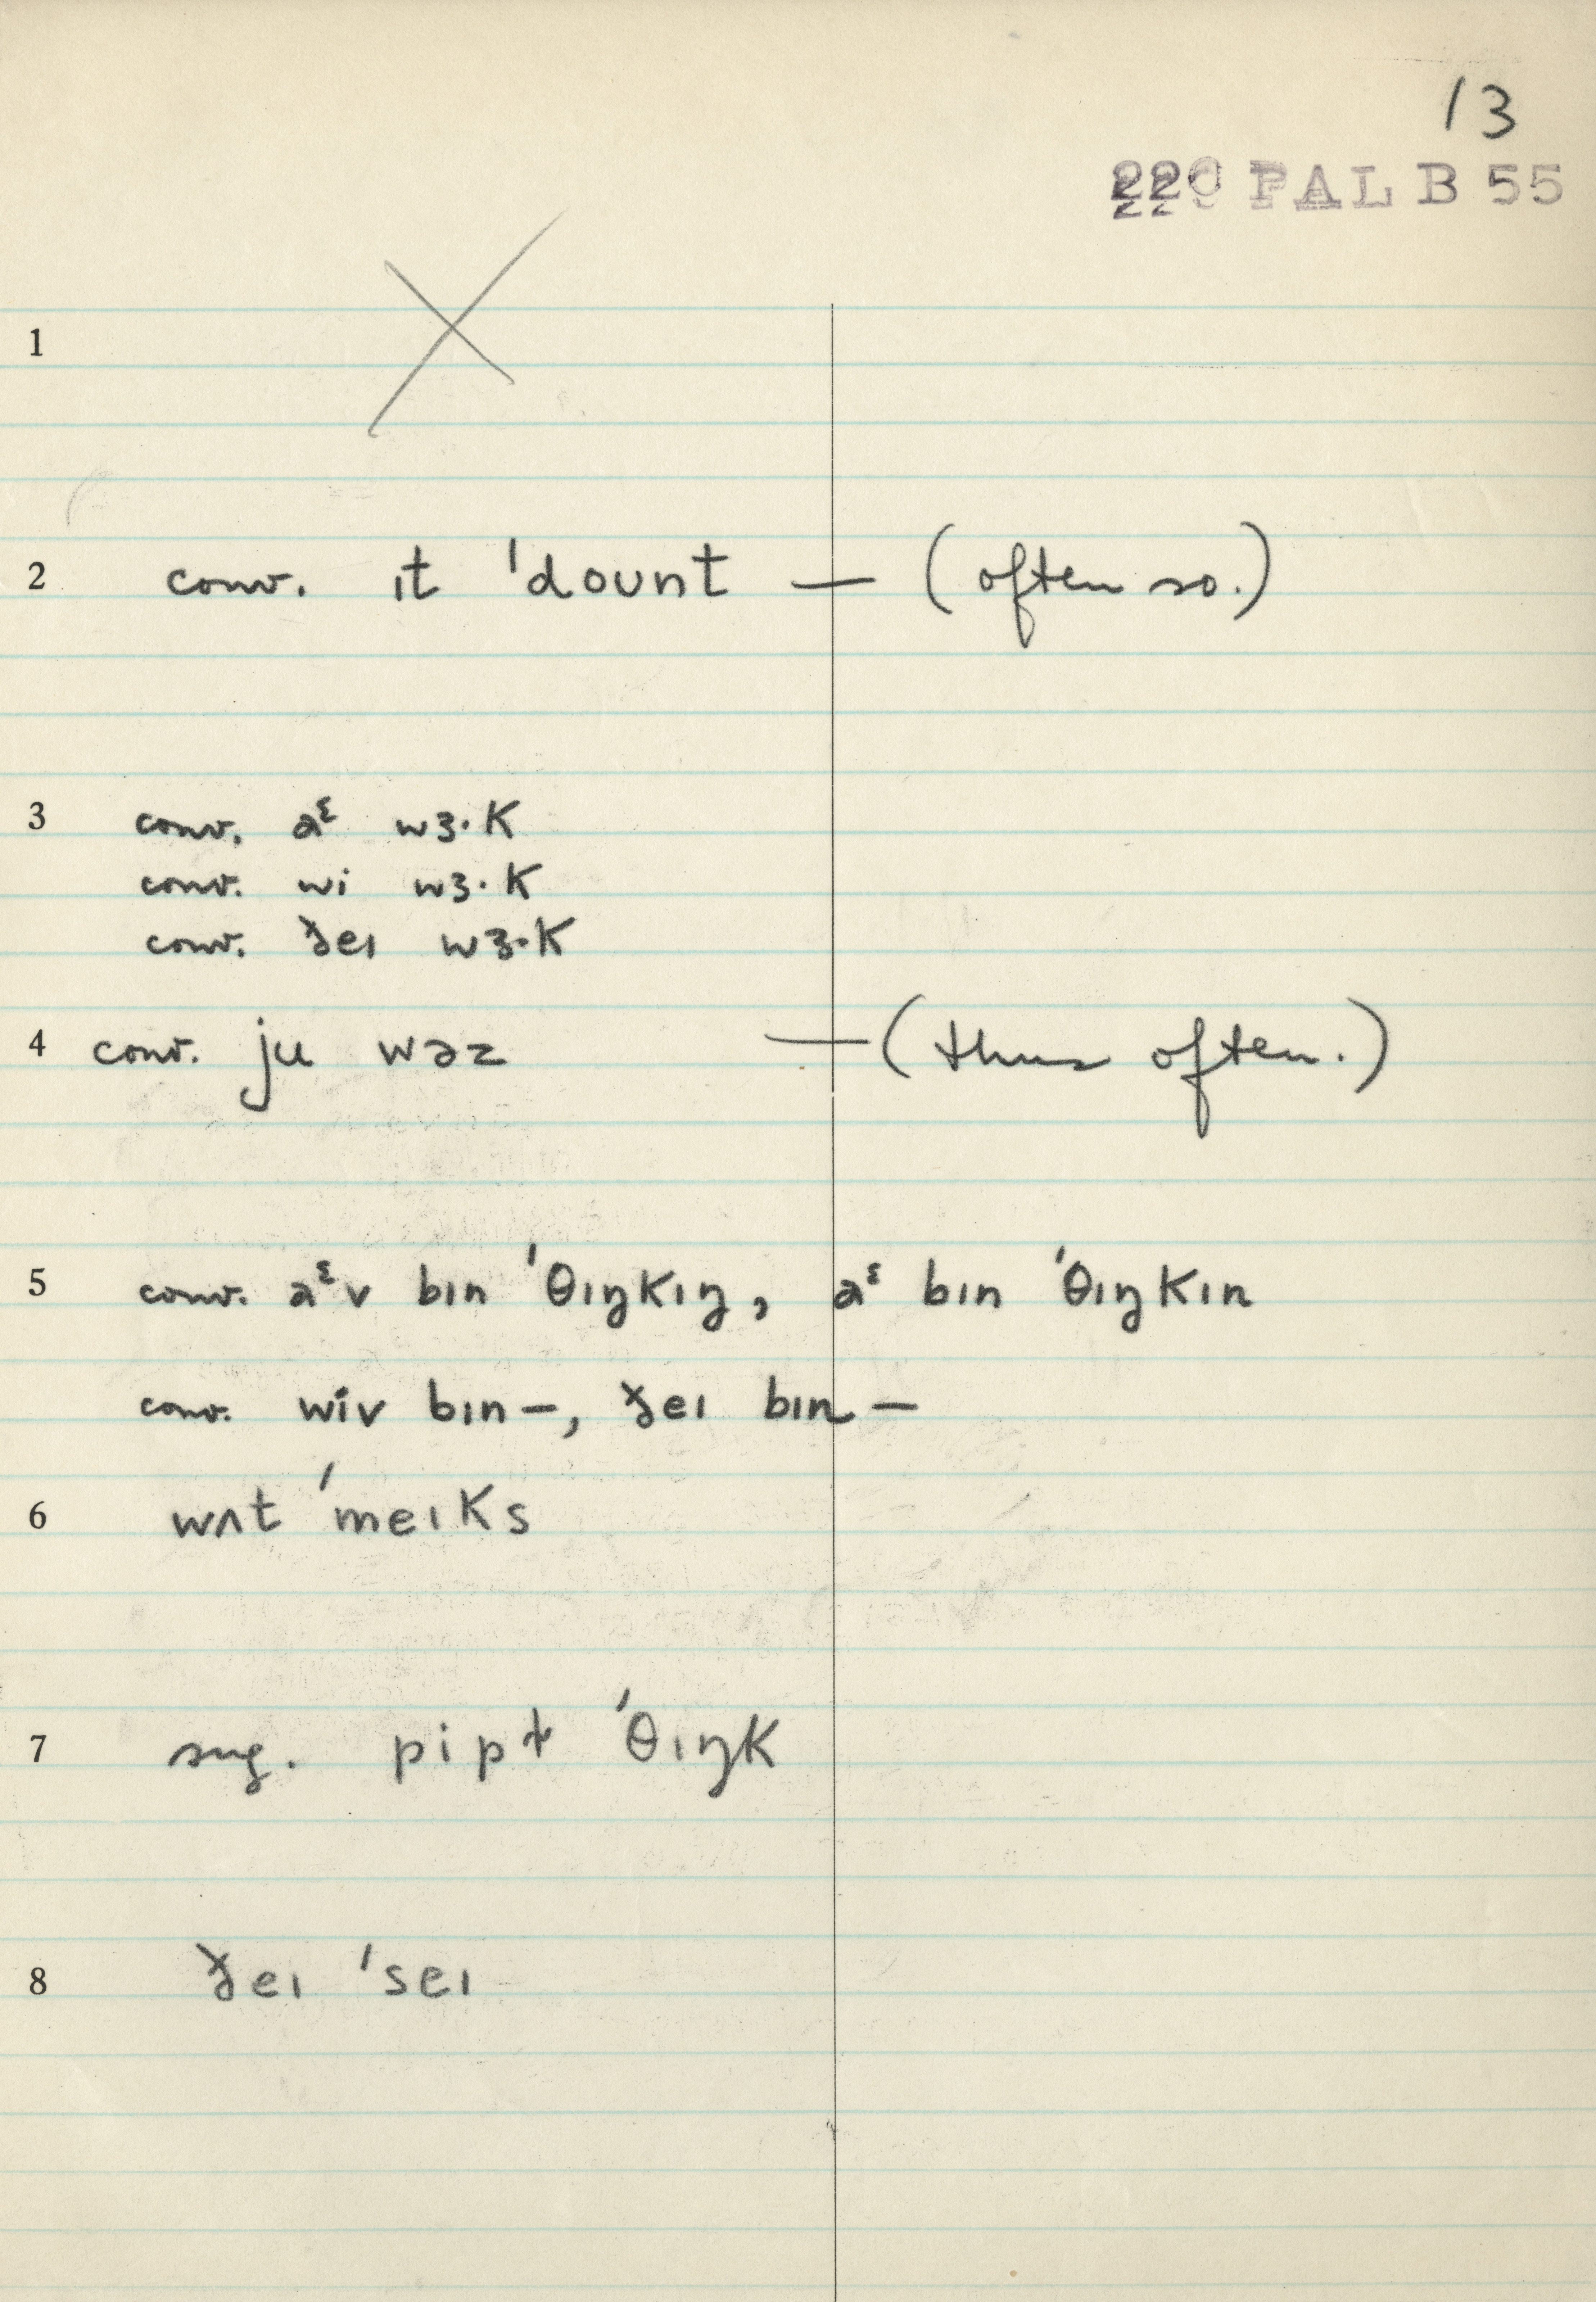 13
220 PAL B 55
1
2 conv. ɪt ˈdoʊnt — (often so.)
3 conv. aᵋ wɜ·k
conv. wi wɜ·k
conv. ðeɪ wɜ·k
4 conv. ju wəz — (thus often.)
5 conv. aᵋv bɪn ˈθɪŋkɪŋ, aᵋ bɪn ˈθɪŋkɪn
conv. wiv bɪn —, ðeɪ bɪn —
6 wʌt ˈmeɪks
7 sug. pipɫ ˈθɪŋk
8 ðeɪ ˈseɪ